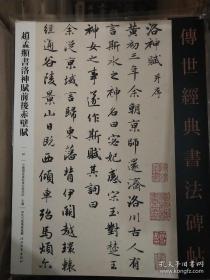 傳世經典書法碑帖
洛神賦 并序
黃初三年余朝京師還濟洛川古人有
言斯水之神名曰宓妃感宋玉對楚王
神女之事遂作斯賦其詞曰
余從京域言歸東藩背伊闕越轘轅
經通谷陵景山日既西傾車殆馬煩
趙孟頫書洛神賦前後赤壁賦